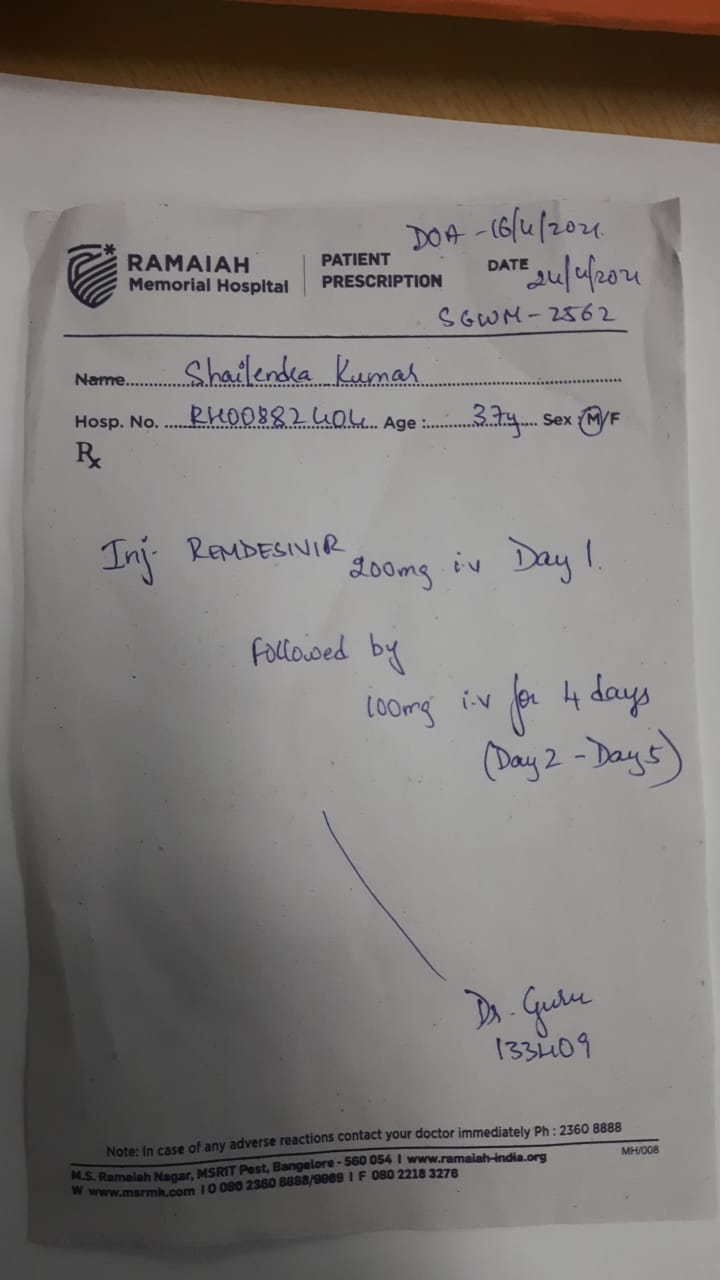 DOA - 16/4/2021.
RAMAIAH
Memorial Hospital
PATIENT
PRESCRIPTION
DATE 24/4/2021
SGWM - 2562
Name Shailendra Kumar
Hosp. No. RH00882404 Age : 37y Sex : M/F
Rx
Inj. REMDESIVIR 200mg i.v Day 1.
Followed by
100mg i.v for 4 days
(Day 2 - Day 5)
Dr. Guru
133409
Note: In case of any adverse reactions contact your doctor immediately Ph : 2360 8888
MH/008
M.S. Ramaiah Nagar, MSRIT Post, Bangalore - 560 054 I www.ramaiah-india.org
W www.msrmh.com I O 080 2360 8888/9999 I F 080 2218 3276